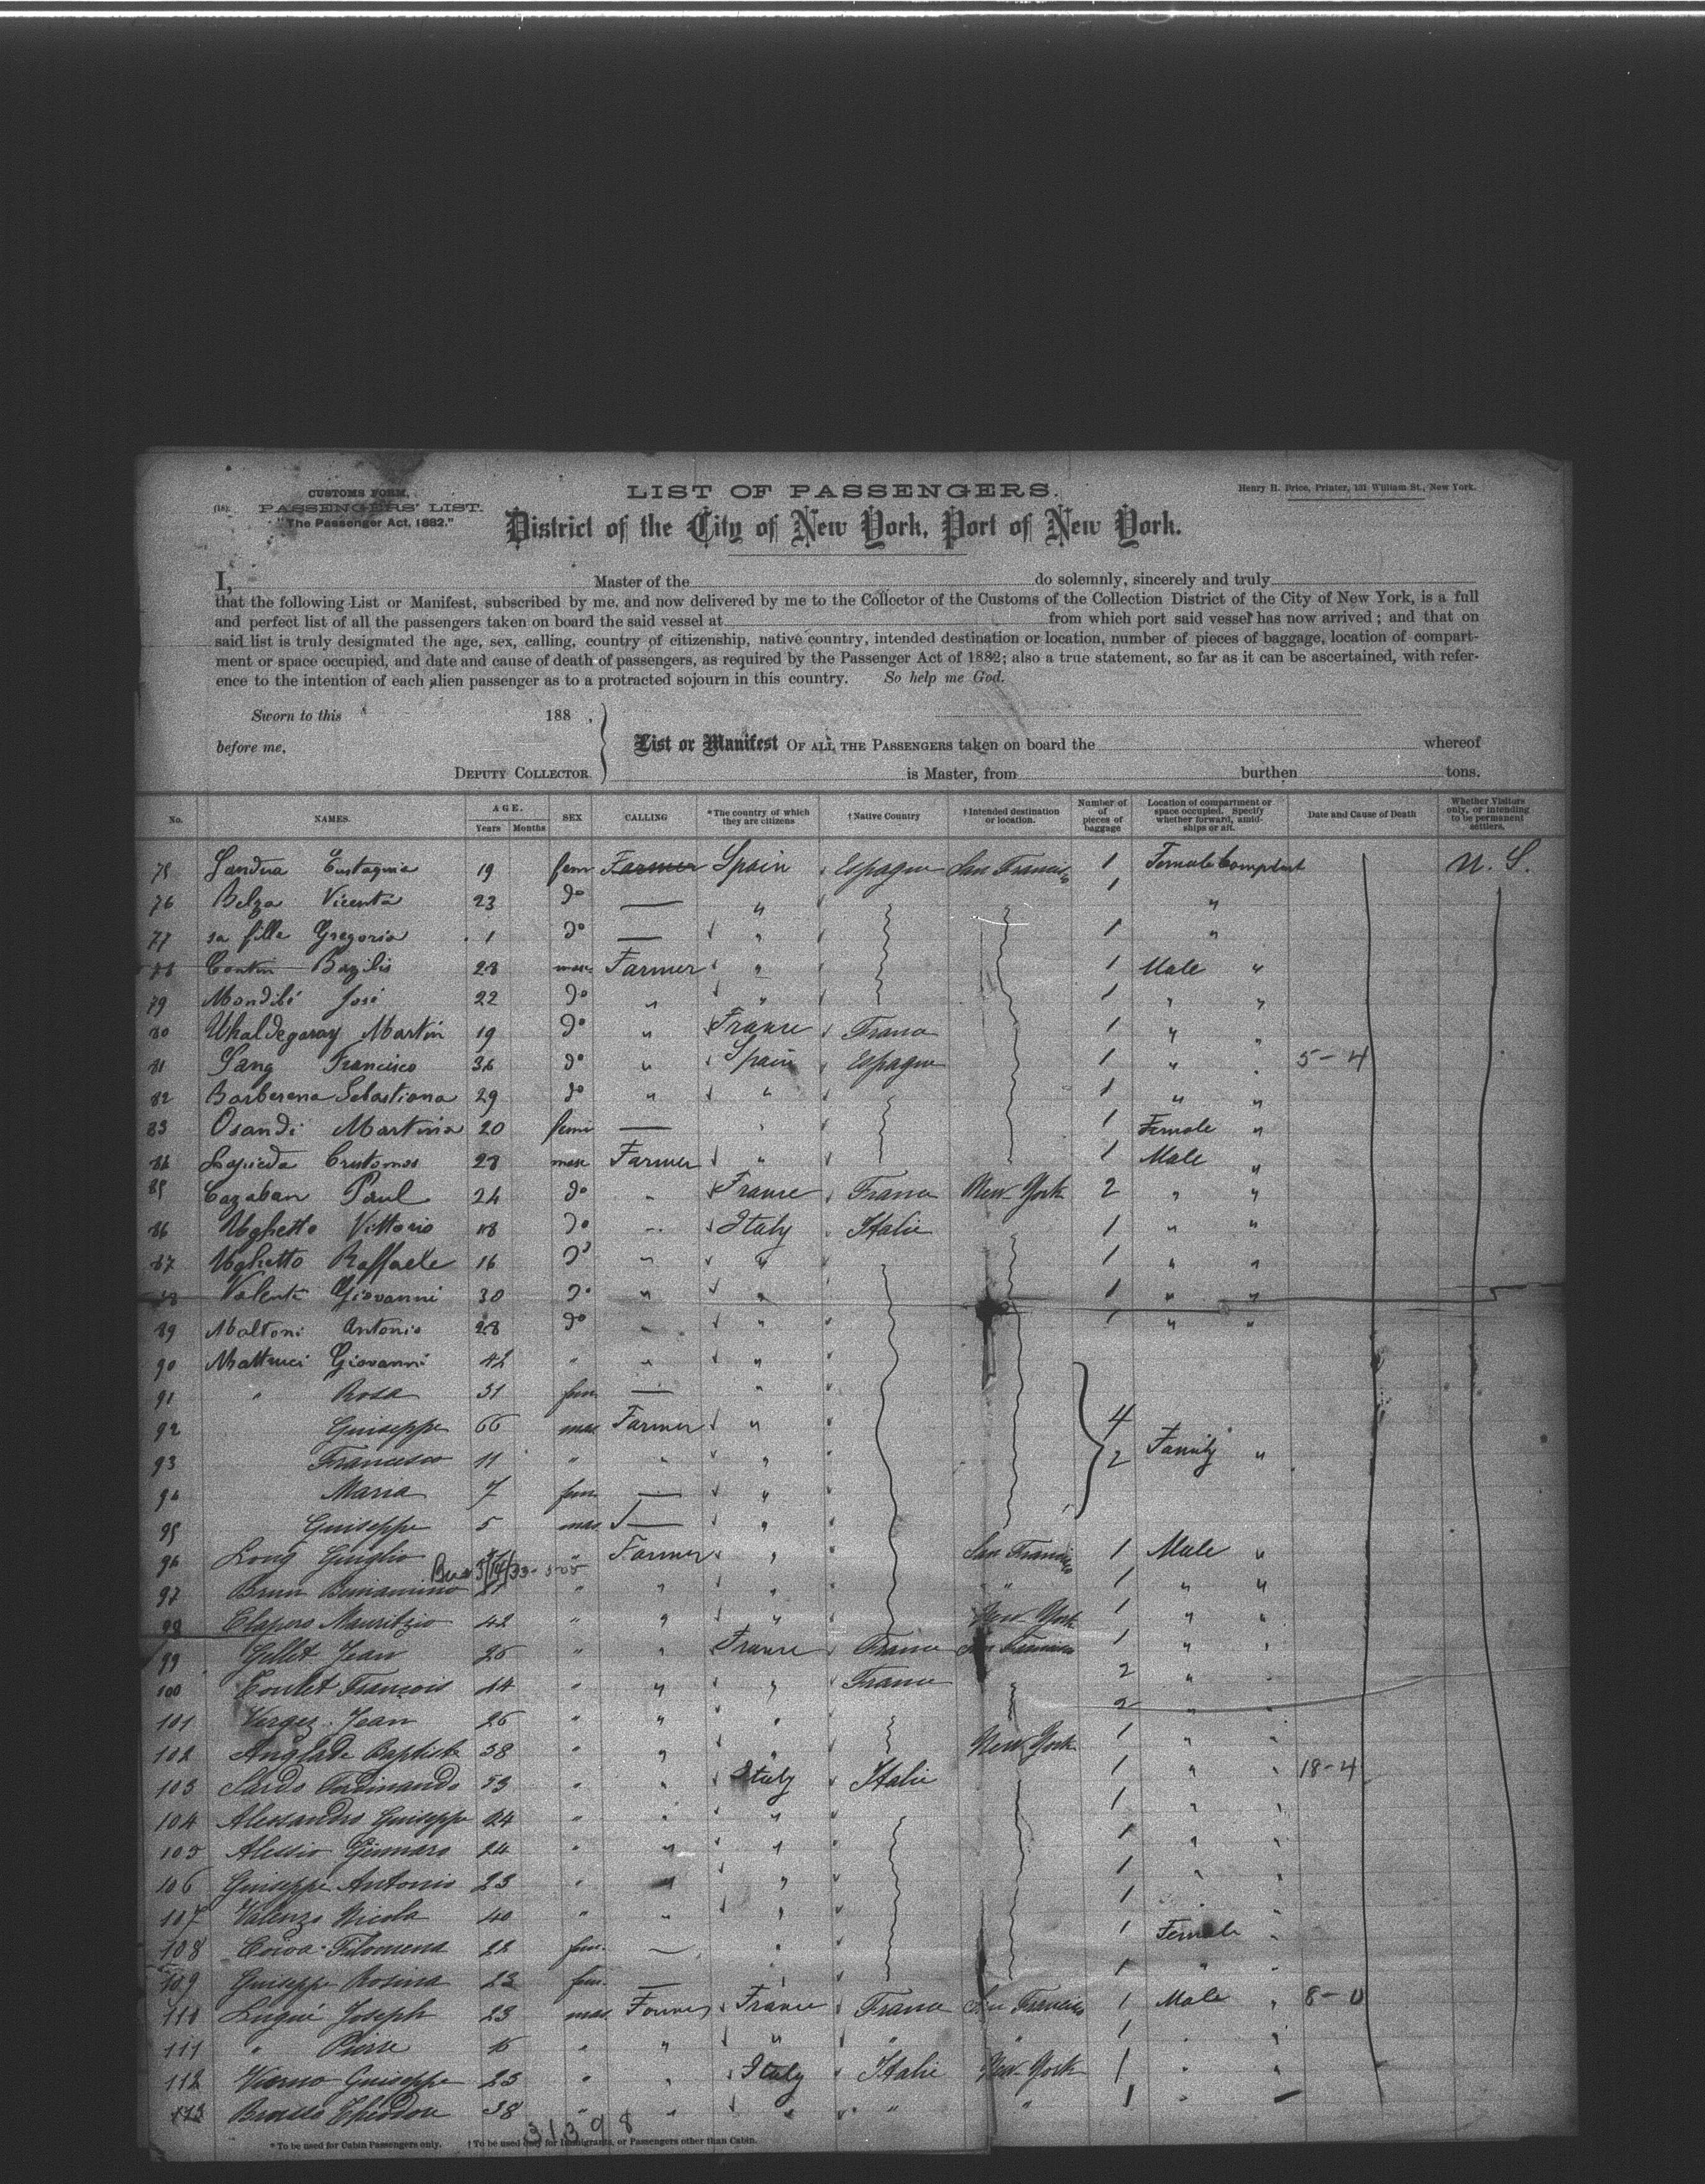 CUSTOMS FORM,
(18)
PASSENGERS' LIST.
"The Passenger Act, 1882."
LIST OF PASSENGERS.
Henry H. Price, Printer, 131 William St., New York.
District of the City of New York, Port of New York.
I, Master of the do solemnly, sincerely and truly
that the following List or Manifest, subscribed by me, and now delivered by me to the Collector of the Customs of the Collection District of the City of New York, is a full
and perfect list of all the passengers taken on board the said vessel at from which port said vessel has now arrived; and that on
said list is truly designated the age, sex, calling, country of citizenship, native country, intended destination or location, number of pieces of baggage, location of compart-
ment or space occupied, and date and cause of death of passengers, as required by the Passenger Act of 1882; also a true statement, so far as it can be ascertained, with refer-
ence to the intention of each alien passenger as to a protracted sojourn in this country. So help me God.
Sworn to this 188 .
before me,
DEPUTY COLLECTOR.
List or Manifest OF ALL THE PASSENGERS taken on board the whereof
is Master, from burthen tons.
No. NAMES. AGE. Years Months SEX CALLING *The country of which they are citizens †Native Country †Intended destination or location. Number of of pieces of baggage Location of compartment or space occupied. Specify whether forward, amidships or aft. Date and Cause of Death Whether Visitors only, or intending to be permanent settlers.
75 Eustaquia 19 fem Farmer Spain Espagne San Francisco 1 Female Compdent U. S.
76 Belza Vicenta 23 do — " 1 "
77 sa fille Gregoria 1 do — " 1 "
78 Bazilio 28 masc Farmer " 1 Male "
79 José 22 do " " 1 " "
80 Uhaldegaray Martin 19 do " France France 1 " "
81 Francisco 36 do " Spain Espagne 1 " " 5-4
82 Barberena Sebastiana 29 do " " 1 " "
83 Osandi Martina 20 femi — " 1 Female "
84 28 masc Farmer " 1 Male "
85 Cazaban Paul 24 do " France France New-York 2 " "
86 Ughetto Vittorio 18 do " Italy Italie 1 " "
87 Ughetto Raffaele 16 do " " 1 " "
88 Valenti Giovanni 30 do " " 1 " "
89 Maltoni Antonio 28 do " " 1 " "
90 Mattucci Giovanni 42 " " "
91 " Rosa 31 fem —
92 Guiseppe 66 mas Farmer " 4
93 Francesco 11 " " " 2 Family "
94 Maria 7 fem — "
95 Guiseppe 5 mas — "
96 Long Giuglio " Farmer " San Francisco 1 Male "
97 Brun Beniamino " " " " 1 " "
98 Mauritzio 42 " " " New York 1 " "
99 Gillet Jean 26 " " France France San Francisco 1 " "
100 Coulet François 44 " " " France 2 "
101 Vergez Jean 26 " " " 2 " "
102 Anglade Baptiste 38 " " " New York 1 " "
103 Sardo Ferdinando 53 " " Italy Italie 1 " " 18-4
104 Alessandro Guiseppe 24 " " " 1 " "
105 Alessio Gennaro 24 " " " 1 " "
106 Guiseppe Antonio 23 " " " 1 " "
107 Valenzo Nicola 40 " " " 1 " "
108 Filomena 22 fem. — " 1 Female "
109 Guiseppe Rosina 23 fem. — " 1 " "
110 Joseph 23 mas Farmer France France San Francisco 1 Male " 8-0
111 " Pierre " " " " " 1 " "
112 Guiseppe 23 " " Italy Italie New-York 1 " "
113 Theodore 38 " " " " " 1 "
31398
*To be used for Cabin Passengers only. †To be used only for Immigrants, or Passengers other than Cabin.